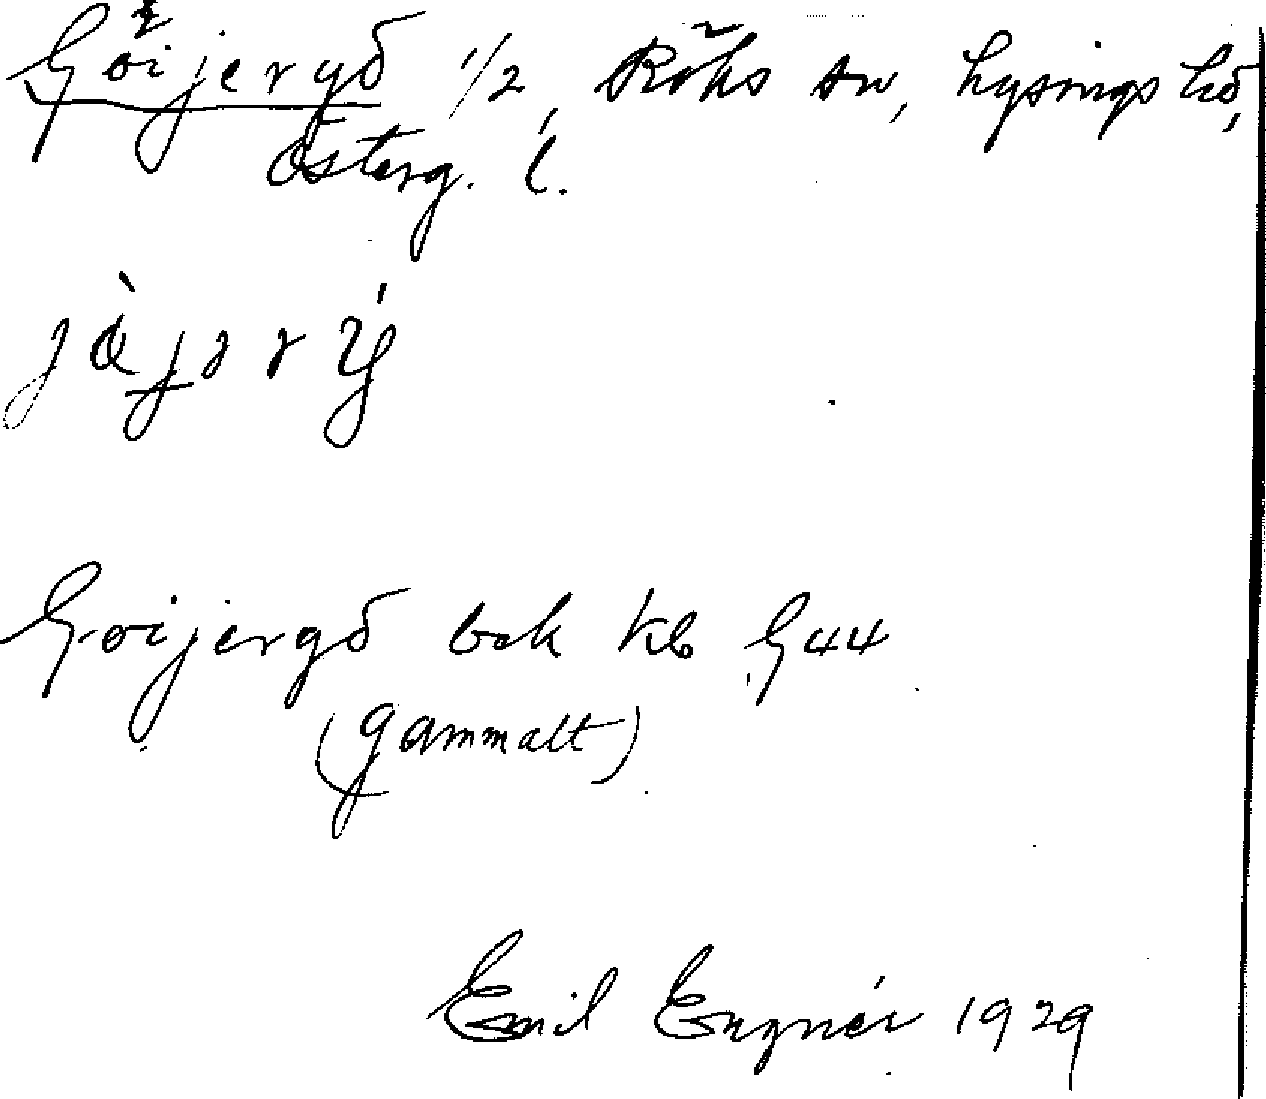 Göijeryd 1/2, Röks sn, Lysings hd,
Österg. l.
Goijergd bok Kb G 44
(gammalt)
Emil Engnér 1929